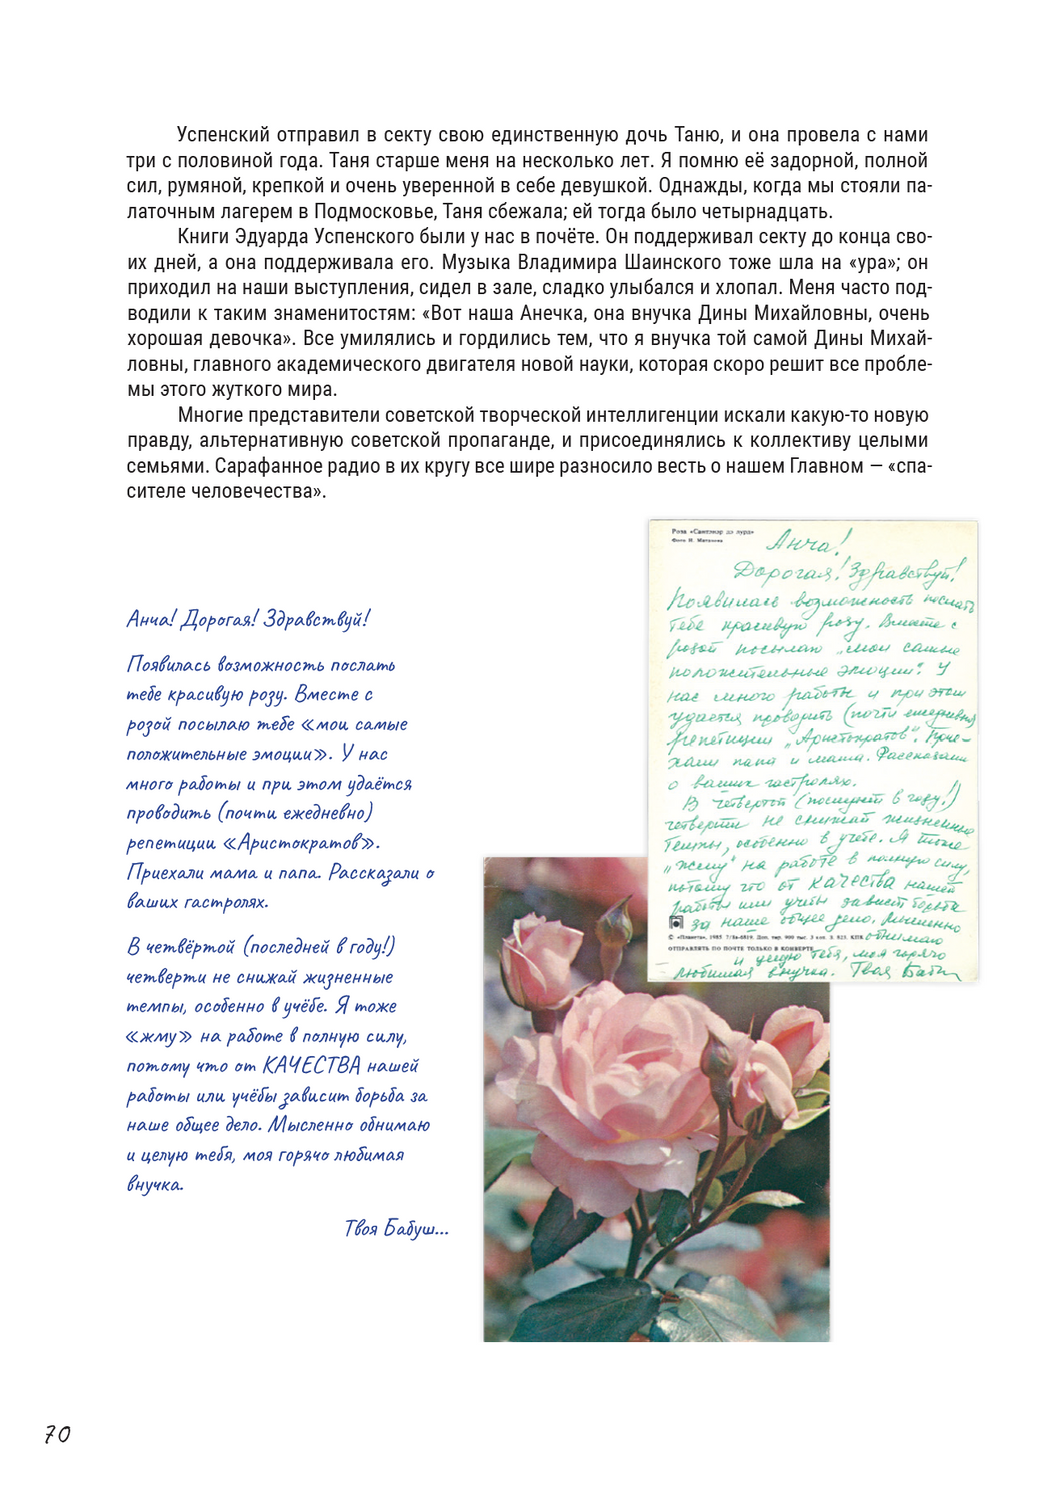 Успенский отправил в секту свою единственную дочь Таню, и она провела с нами
три с половиной года. Таня старше меня на несколько лет. Я помню её задорной, полной
сил, румяной, крепкой и очень уверенной в себе девушкой. Однажды, когда мы стояли па-
латочным лагерем в Подмосковье, Таня сбежала; ей тогда было четырнадцать.
Книги Эдуарда Успенского были у нас в почёте. Он поддерживал секту до конца сво-
их дней, а она поддерживала его. Музыка Владимира Шаинского тоже шла на «ура»; он
приходил на наши выступления, сидел в зале, сладко улыбался и хлопал. Меня часто под-
водили к таким знаменитостям: «Вот наша Анечка, она внучка Дины Михайловны, очень
хорошая девочка». Все умилялись и гордились тем, что я внучка той самой Дины Михай-
ловны, главного академического двигателя новой науки, которая скоро решит все пробле-
мы этого жуткого мира.
Многие представители советской творческой интеллигенции искали какую-то новую
правду, альтернативную советской пропаганде, и присоединялись к коллективу целыми
семьями. Сарафанное радио в их кругу все шире разносило весть о нашем Главном — «спа-
сителе человечества».
Анча! Дорогая! Здравствуй!
Появилась возможность послать
тебе красивую розу. Вместе с
розой посылаю тебе «мои самые
положительные эмоции». У нас
много работы и при этом удаётся
проводить (почти ежедневно)
репетиции «Аристократов».
Приехали мама и папа. Рассказали о
ваших гастролях.
В четвёртой (последней в году!)
четверти не снижай жизненные
темпы, особенно в учёбе. Я тоже
«жму» на работе в полную силу,
потому что от КАЧЕСТВА нашей
работы или учёбы зависит борьба за
наше общее дело. Мысленно обнимаю
и целую тебя, моя горячо любимая
внучка.
Твоя Бабуш...
Роза «Сантэнэр дэ лурд»
Фото Н. Матанова
Анча!
Дорогая! Здравствуй!
Появилась возможность послать
тебе красивую розу. Вместе с
розой посылаю „мои самые
положительные эмоции". У
нас много работы и при этом
удается проводить (почти ежедневно)
репетиции „Аристократов". Прие-
хали папа и мама. Рассказали
о ваших гастролях.
В четвертой (последней в году!)
четверти не снижай жизненные
темпы, особенно в учебе. Я тоже
„жму" на работе в полную силу,
потому что от КАЧЕСТВА нашей
работы или учебы зависит борьба
за наше общее дело. Мысленно
© «Планета», 1985.
обнимаю
ОТПРАВЛЯТЬ ПО ПОЧТЕ ТОЛЬКО В КОНВЕРТЕ
и целую тебя, моя горячо
любимая внучка. Твоя
70